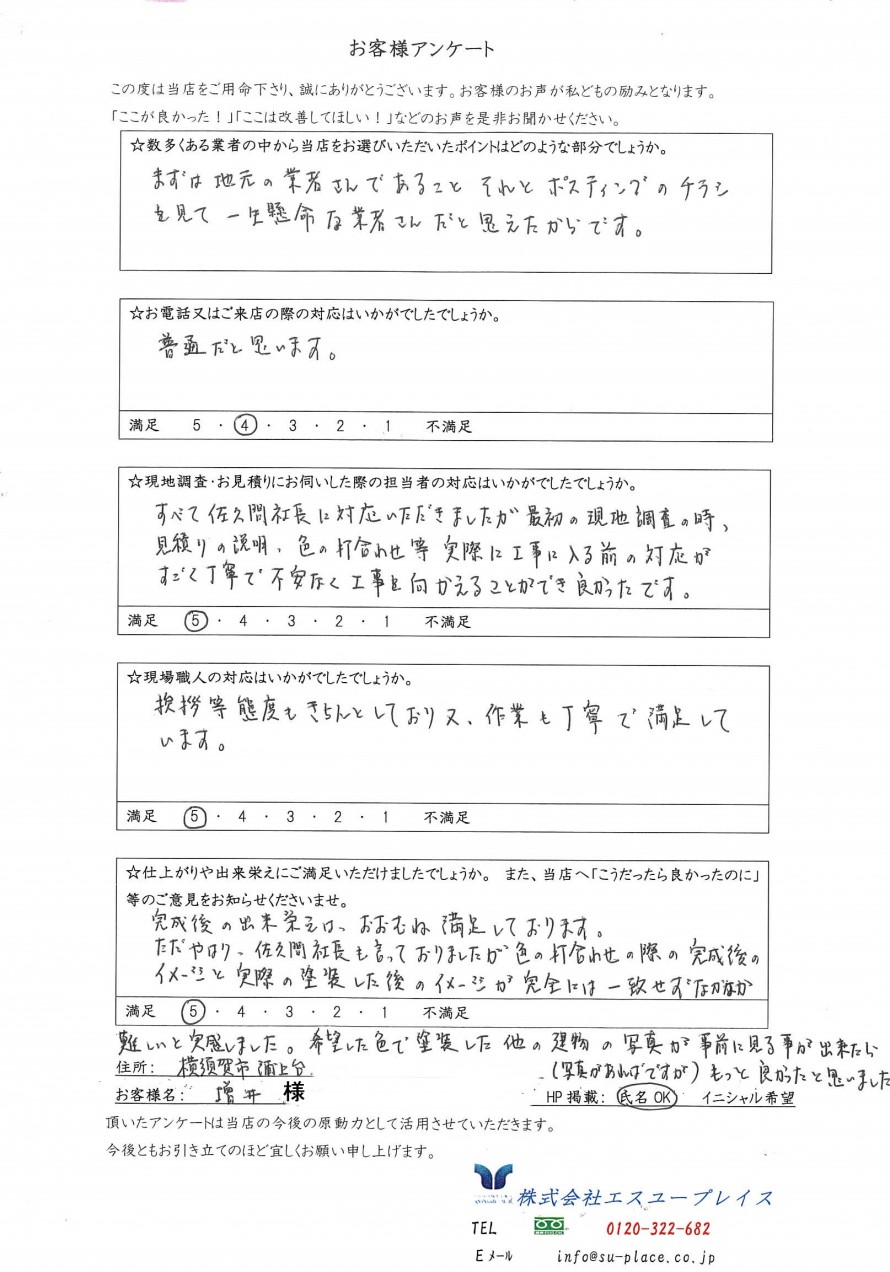 お客様アンケート
この度は当店をご用命下さり、誠にありがとうございます。お客様のお声が私どもの励みとなります。
「ここが良かった！」「ここは改善してほしい！」などのお声を是非お聞かせください。
☆数多くある業者の中から当店をお選びいただいたポイントはどのような部分でしょうか。
まずは地元の業者さんであること それと ポスティングのチラシ
を見て 一生懸命な業者さんだと思えたからです。
☆お電話又はご来店の際の対応はいかがでしたでしょうか。
普通だと思います。
満足 5 ・ 4 ・ 3 ・ 2 ・ 1 不満足
☆現地調査・お見積りにお伺いした際の担当者の対応はいかがでしたでしょうか。
すべて佐久間社長に対応いただきましたが最初の現地調査の時、
見積りの説明、色の打合わせ等 実際に工事に入る前の対応が
すごく丁寧で不安なく工事を向かえることができ良かったです。
満足 5 ・ 4 ・ 3 ・ 2 ・ 1 不満足
☆現場職人の対応はいかがでしたでしょうか。
挨拶等態度もきちんとしており又、作業も丁寧で満足して
います。
満足 5 ・ 4 ・ 3 ・ 2 ・ 1 不満足
☆仕上がりや出来栄えにご満足いただけましたでしょうか。 また、当店へ「こうだったら良かったのに」
等のご意見をお知らせくださいませ。
完成後の出来栄えは、おおむね満足しております。
ただやはり、佐久間社長も言っておりましたが色の打合わせの際の完成後の
イメージと実際の塗装した後のイメージが完全には一致せずなかなか
満足 5 ・ 4 ・ 3 ・ 2 ・ 1 不満足
難しいと実感しました。希望した色で塗装した他の建物の写真が事前に見る事が出来たら
(写真があればですが)もっと良かったと思いました
住所: 横須賀市 上台
お客様名: 増井 様
HP掲載: 氏名OK イニシャル希望
頂いたアンケートは当店の今後の原動力として活用させていただきます。
今後ともお引き立てのほど宜しくお願い申し上げます。
株式会社エスユープレイス
TEL 0120-322-682
Eメール info@su-place.co.jp